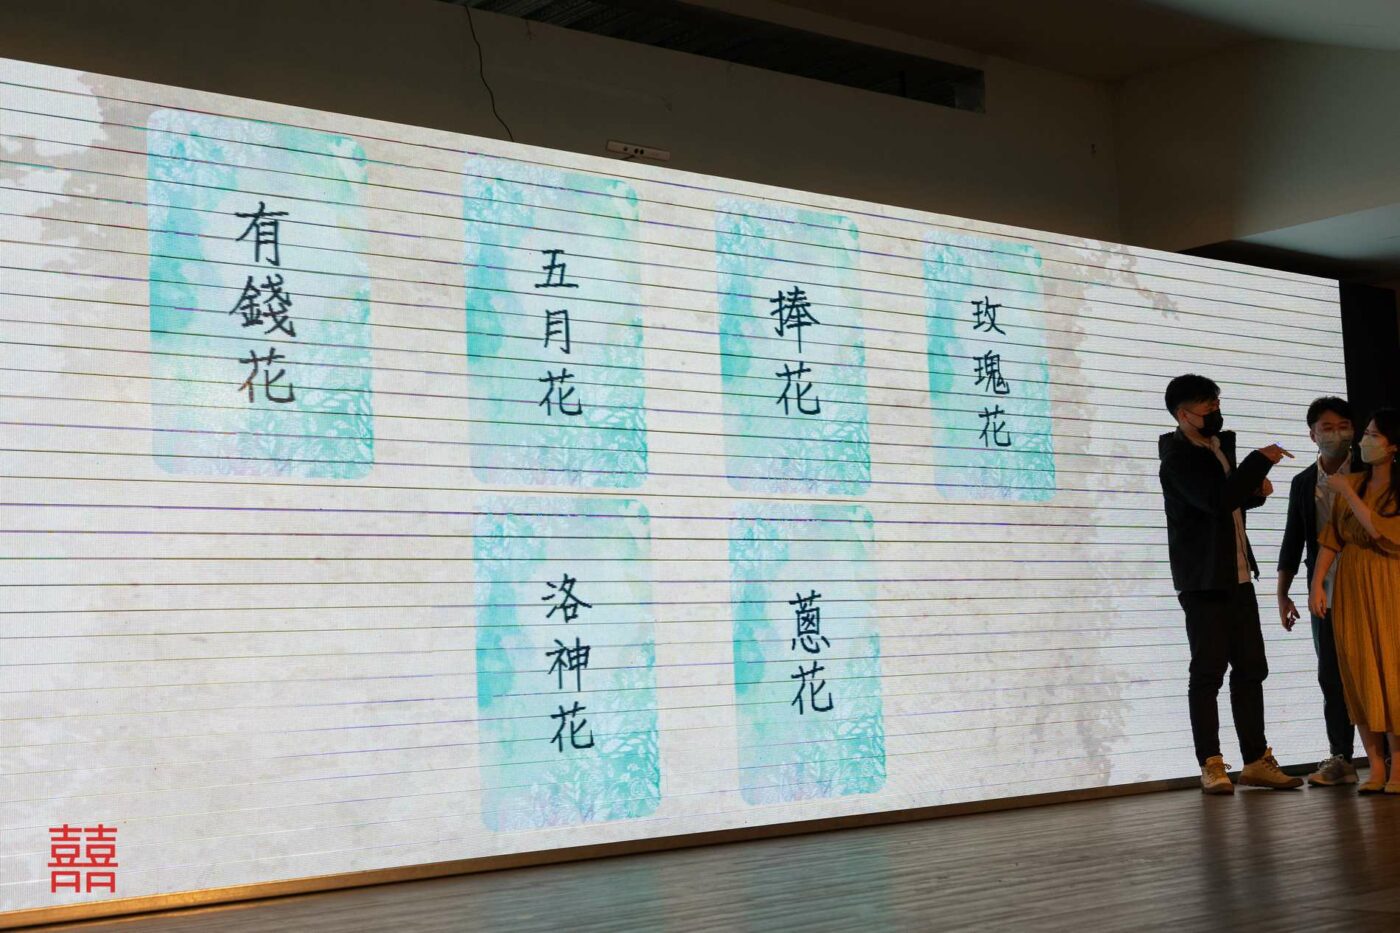 有錢花
五月花
捧花
玫瑰花
洛神花
蔥花
囍